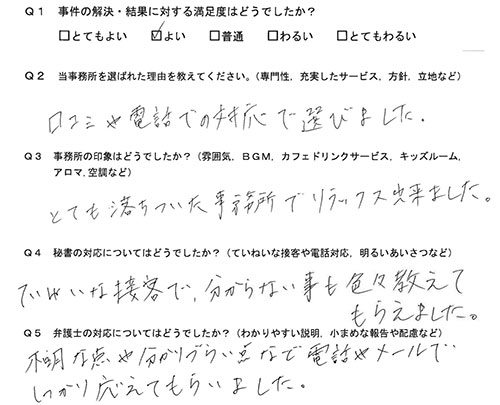 Q1 事件の解決・結果に対する満足度はどうでしたか？
□とてもよい ☑よい □普通 □わるい □とてもわるい
Q2 当事務所を選ばれた理由を教えてください。（専門性，充実したサービス，方針，立地など）
口コミや電話での対応で選びました。
Q3 事務所の印象はどうでしたか？（雰囲気，ＢＧＭ，カフェドリンクサービス，キッズルーム，
アロマ,空調など）
とても落ちついた事務所でリラックス出来ました。
Q4 秘書の対応についてはどうでしたか？（ていねいな接客や電話対応，明るいあいさつなど）
ていねいな接客で、分からない事も色々教えて
もらえました。
Q5 弁護士の対応についてはどうでしたか？（わかりやすい説明，小まめな報告や配慮など）
不明な点や分かりづらい点など電話やメールで
しっかり応えてもらいました。